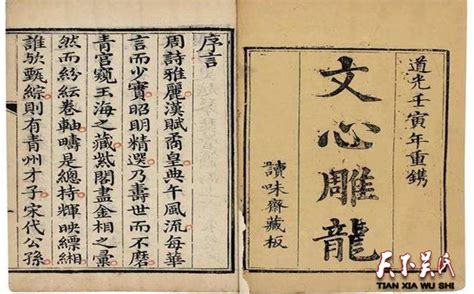 道光壬寅年重鐫
文心雕龍
讀味齋藏板
序言
周詩雅麗漢賦矞皇典午風流每華
言而少實昭明精選乃壽世而不磨
青宮窺玉海之藏紫閣盡金相之彙
然而紛紜卷軸疇是總持輝映縹緗
誰歟甄綜則有青州才子宋代公孫
天下吴氏
TIAN XIA WU SHI